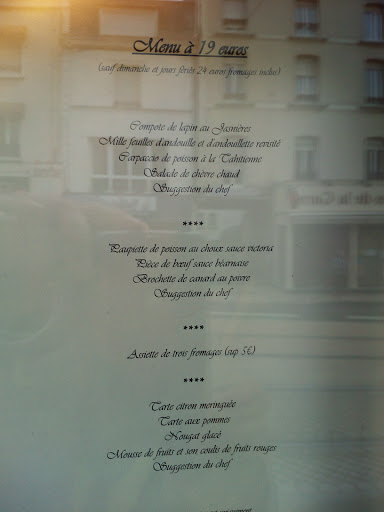 Menu à 19 euros
(sauf dimanche et jours fériés 24 euros fromages inclus)
Compote de lapin au Jasnières
Mille feuilles d'andouille et d'andouillette revisité
Carpaccio de poisson à la Tahitienne
Salade de chèvre chaud
Suggestion du chef
****
Paupiette de poisson au choux sauce victoria
Pièce de bœuf sauce béarnaise
Brochette de canard au poivre
Suggestion du chef
****
Assiette de trois fromages (sup 5€)
****
Tarte citron meringuée
Tarte aux pommes
Nougat glacé
Mousse de fruits et son coulis de fruits rouges
Suggestion du chef